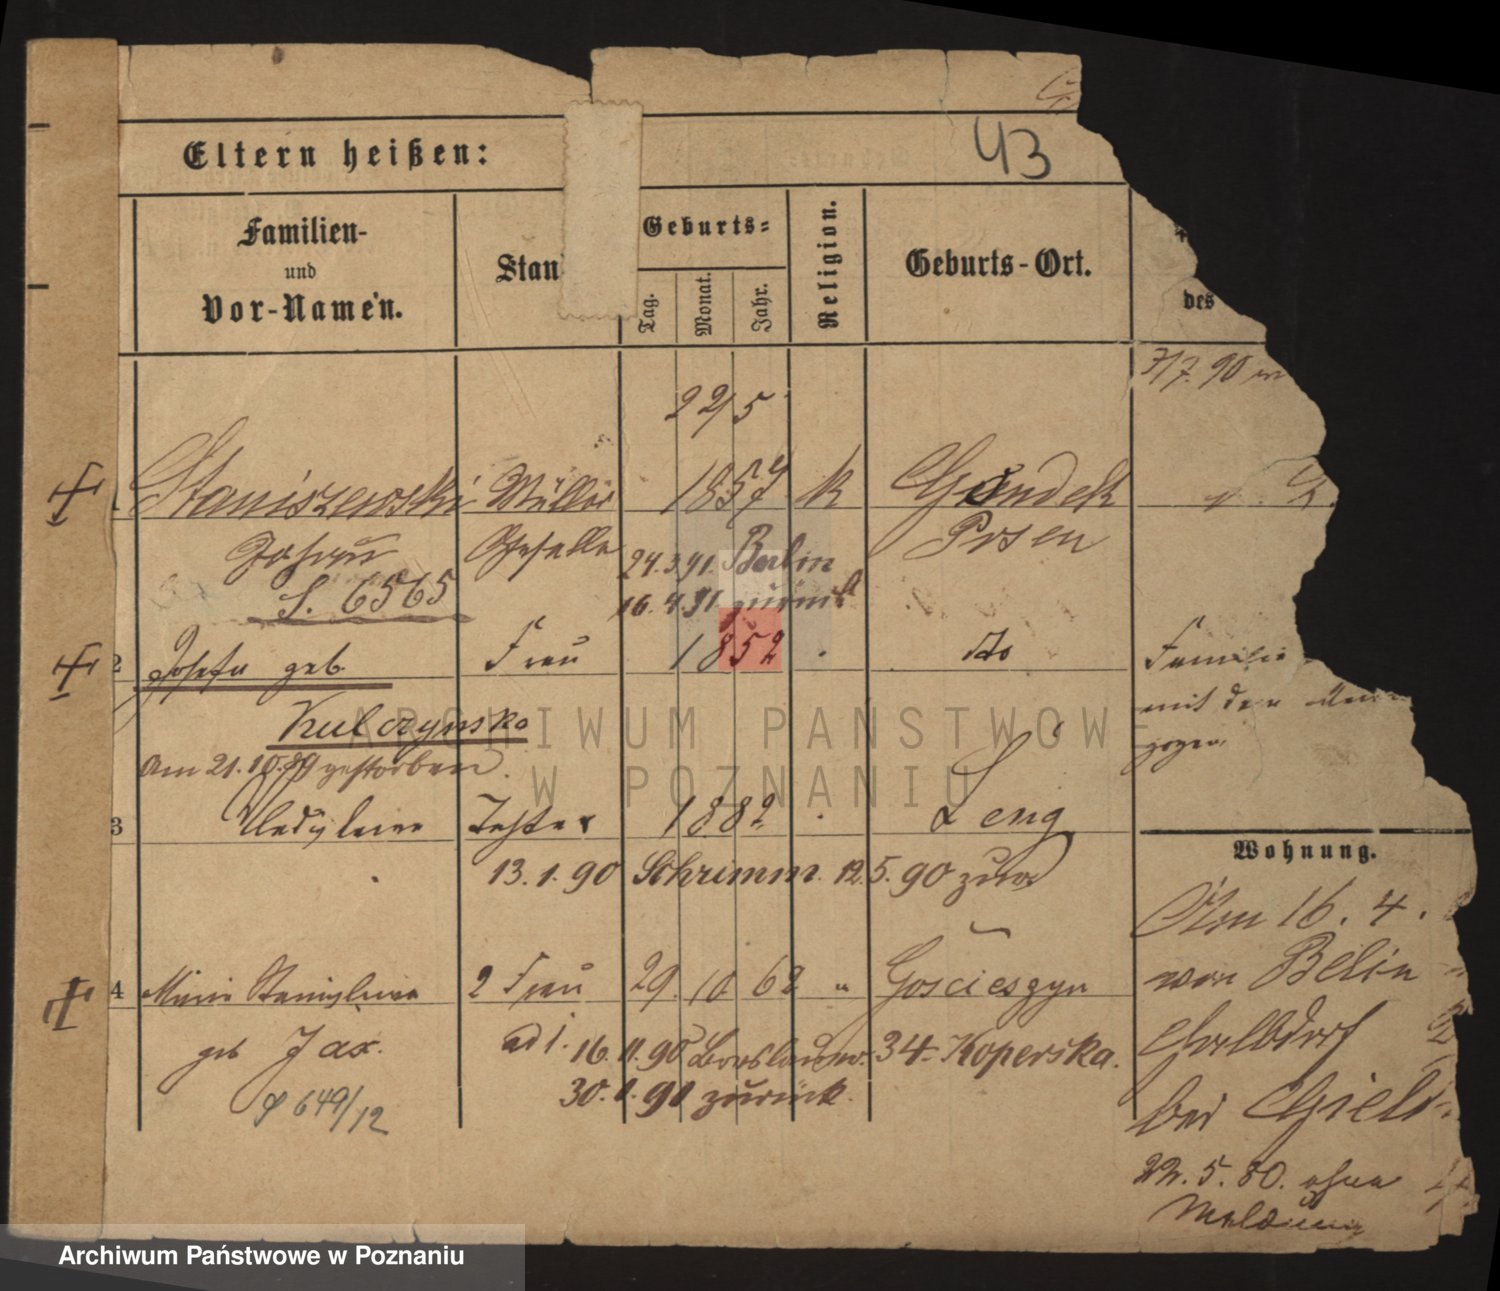 43
Eltern heißen:
Familien-
und
Vor-Namen.
Stan
Geburts-
Tag.
Monat.
Jahr.
Religion.
Geburts-Ort.
des
7/7. 90
22/5
Staniszewski Müller 1857 k Gondek
Johann Geselle Posen
24.3.91. Berlin
16.4.91. zurück
S. 6565
2 Josefa geb. Frau 1852 do Familie
Kulczynska mit dem
gezogen
Am 21.10.89 gestorben.
3 Tochter 1882
Wohnung.
13.1.90 Schrimm. 12.5.90 zurück
Von 16. 4.
4 2 Frau 29 10 68 " Goscieszyn
von
geb Jax.
ad 1. 16.11.90 Breslauer. 34 Koperska.
30.1.91 zurück.
649/12
bei
22.5.80. ohne
Meldung
ARCHIWUM PAŃSTWOWE
W POZNANIU
Archiwum Państwowe w Poznaniu